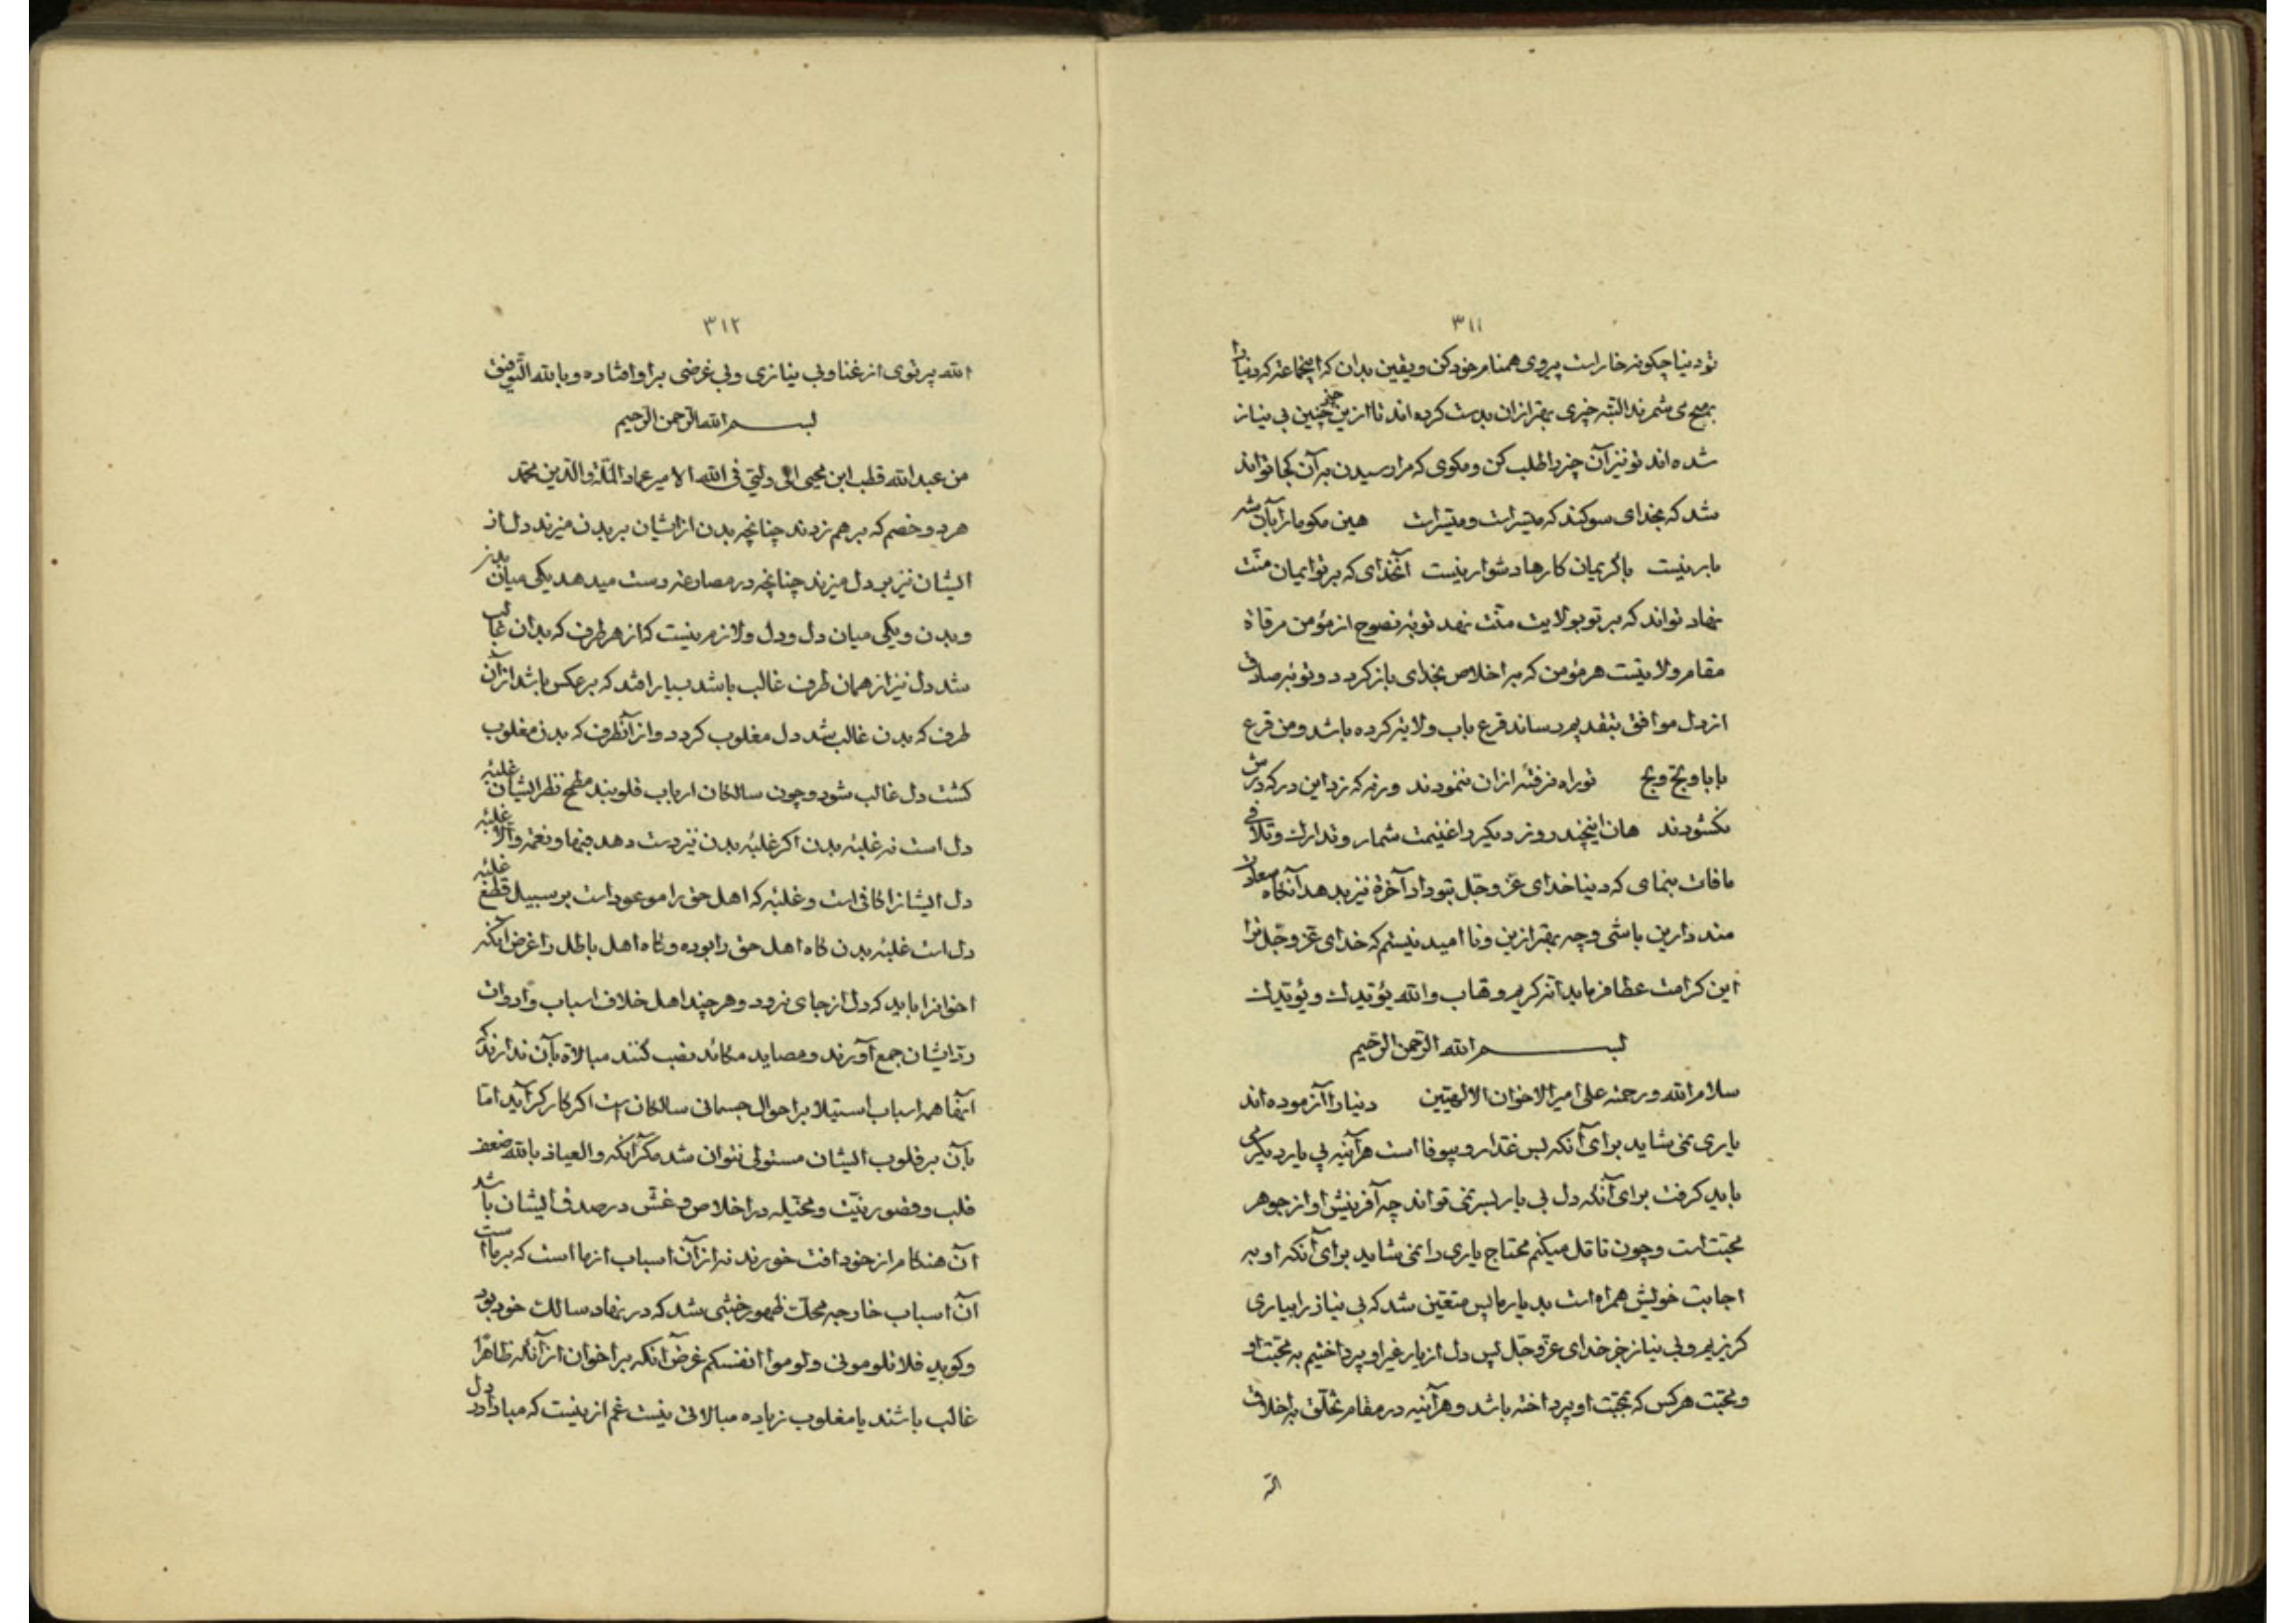 ۳۱۱
تو دنیا چکونه خار است پیروی همنام خود کن و یقین بدان که اینجماعتر که دنیا را
بهیچ می شمرند البته چیزی بهتر ازان بدست کرده اند تا ازین چنین چیز بی نیاز
شده اند تو نیز آن چیز را طلب کن و مکوی که مرا رسیدن بر آن کجا تواند
شد که بخدای سوکند که میتسر است و میتسر است هین مکو ما را بآن شه
بار نیست با کریمان کارها دشوار نیست آنخدای که بر تو ایمان منّت
نهاد تواند که بر تو بولایت منّت نهد توبهٔ نصوح از مؤمن مرقاة
مقام ولایتست هر مؤمن که بر اخلاص بخدای باز کردد و توبهٔ صادق
از دل موافق بتقدیم رساند قرع باب ولایة کرده باشد و من قرع
بابا و لجّ و لج تو راه نرفتهٔ ازان ننمودند ورنه که زد این در که درش
نکشودند هان اینچند روز دیکر را غنیمت شمار و تدارک و تلافی
مافات بنمای که دنیا خدای عزّ و جلّ بتو داد آخرة نیز بدهد آنکاه سعادت
مند دارین باشی و چه بهتر ازین و نا امید نیستم که خدای عزّ و جلّ ترا
این کرامت عطا فرماید انه کریم وهاب و الله یؤتیدک و یؤیدک
بسم الله الرّحمن الرّحیم
سلام الله و رحمته علی امیر الاخوان الالهیّین دنیا را آزموده اند
یاری نمی شاید برای آنکه بس غدّار و بیوفا است هرآینه پی یار دیکر می
باید کرفت برای آنکه دل بی یار بسر نمی تواند چه آفرینش او از جوهر
محبّت است و چون تامّل میکنم محتاج یاری را نمی شاید برای آنکه او به
اجابت خویش همراه است بد یار ما پس متعیّن شد که بی نیاز را بیاری
کزیریم و بی نیاز جز خدای عزّ و جلّ پس دل از یار غیر او پرداختیم به محبّت او
و محبّت هر کس که بمحبّت او پرداخته باشد و هرآینه در مقام تخلّق به اخلاق
الله
۳۱۲
الله پرتوی از غنا و بی نیازی و بی غرضی بر او افتاده و بالله التّوفیق
بسم الله الرّحمن الرّحیم
من عبدالله قطب ابن محیی الی ولیّی فی الله الامیر عماد الملّة و الدّین محمّد
هر دو خصم که بر هم زدند چنانچه بدن ازایشان بر بدن میزند دل از
ایشان نیز بر دل میزند چنانچه در مصارعه دست میدهد یکی میان بدن
و بدن و یکی میان دل و دل و لازم نیست که از هر طرف که بدان غالب
شد دل نیز از همان طرف غالب باشد بسیار افتد که بر عکس باشد از آن
طرف که بدن غالب شد دل مغلوب کردد و از آنطرف که بدن مغلوب
کشت دل غالب شود و چون سالکان ارباب قلوبند مطمح نظر ایشان غلبهٔ
دل است نه غلبهٔ بدن اکر غلبهٔ بدن نیز دست دهد فبها و نعمة و الّا غلبهٔ
دل ایشانرا کافی است و غلبهٔ که اهل حق را موعود است بر سبیل قطع غلبهٔ
دل است غلبهٔ بدن کاه اهل حق را بوده و کاه اهل باطل را غرض آنکه
اخوانرا باید که دل از جای نرود و هر چند اهل خلاف اسباب و ادوات
ردّ ایشان جمع آورند و مصاید مکائد نصب کنند مبالاة بآن ندارند که
اینها همه اسباب استیلا بر احوال جسمانی سالکان است اکر کار کر آید امّا
بآن بر قلوب ایشان مستولی نتوان شد مکر آنکه و العیاذ بالله ضعف
قلب و قصور نیّت و مخیّله در اخلاص و غشّ در صدق ایشان باشد
آن هنکام از خود افت خورند نه از آن اسباب از ما است که بر ما است
آن اسباب خارجه محلّت ظهور خبثی شد که در نهاد سالک خود بود
و کوید فلا تلومونی و لوموا انفسکم غرض آنکه بر اخوان از آنکه ظاهرًا
غالب باشند یا مغلوب زیاده مبالاتی نیست غم ازینست که مبادا در دل